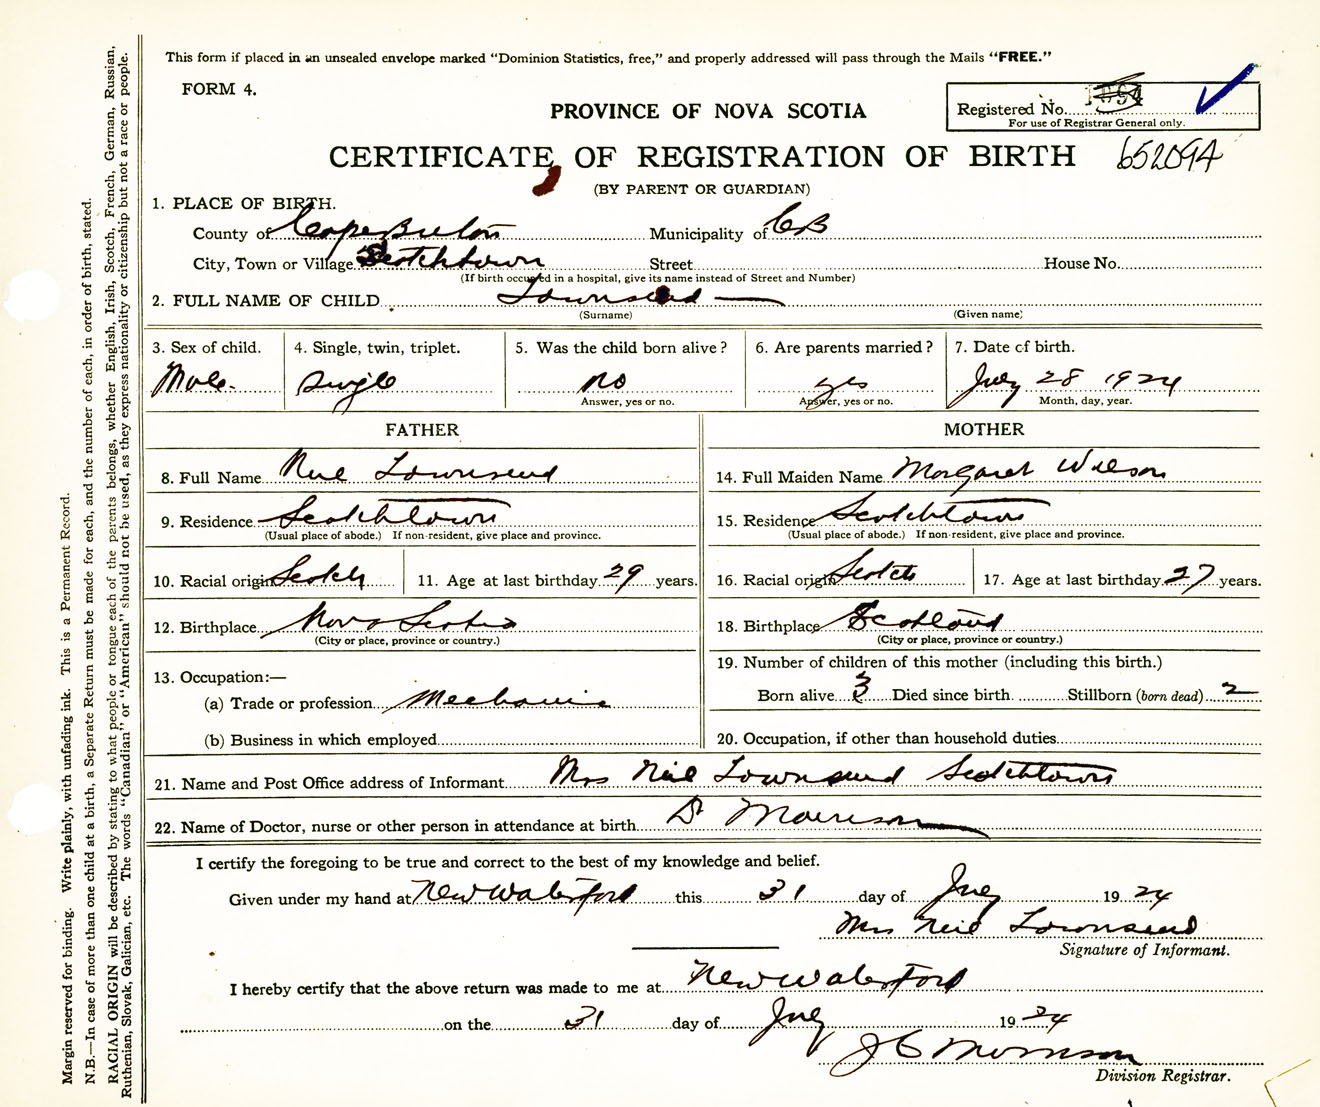 This form if placed in an unsealed envelope marked "Dominion Statistics, free," and properly addressed will pass through the Mails "FREE."
FORM 4.
PROVINCE OF NOVA SCOTIA
Registered No.
For use of Registrar General only.
CERTIFICATE OF REGISTRATION OF BIRTH 652094
(BY PARENT OR GUARDIAN)
1. PLACE OF BIRTH.
County of Cape Breton Municipality of CB
City, Town or Village Scotchtown Street House No.
(If birth occured in a hospital, give its name instead of Street and Number)
2. FULL NAME OF CHILD Townsend —
(Surname) (Given name)
3. Sex of child. 4. Single, twin, triplet. 5. Was the child born alive? 6. Are parents married? 7. Date of birth.
Male. Single no yes July 28 1924
Answer, yes or no. Answer, yes or no. Month, day, year.
FATHER MOTHER
8. Full Name Neil Townsend 14. Full Maiden Name Margaret Wilson
9. Residence Scotchtown 15. Residence Scotchtown
(Usual place of abode.) If non-resident, give place and province. (Usual place of abode.) If non-resident, give place and province.
10. Racial origin Scotch 11. Age at last birthday 29 years. 16. Racial origin Scotch 17. Age at last birthday 27 years.
12. Birthplace Nova Scotia 18. Birthplace Scotland
(City or place, province or country.) (City or place, province or country.)
13. Occupation:— 19. Number of children of this mother (including this birth.)
(a) Trade or profession Mechanic Born alive 3 Died since birth Stillborn (born dead) 2
(b) Business in which employed 20. Occupation, if other than household duties
21. Name and Post Office address of Informant Mrs Neil Townsend Scotchtown
22. Name of Doctor, nurse or other person in attendance at birth Dr Morrison
I certify the foregoing to be true and correct to the best of my knowledge and belief.
Given under my hand at New Waterford this 31 day of July 1924
Mrs Neil Townsend
Signature of Informant.
I hereby certify that the above return was made to me at New Waterford
on the 31 day of July 1924
J C Morrison
Division Registrar.
Margin reserved for binding. Write plainly, with unfading ink. This is a Permanent Record.
N.B.—In case of more than one child at a birth, a Separate Return must be made for each, and the number of each, in order of birth, stated.
RACIAL ORIGIN will be described by stating to what people or tongue each of the parents belongs, whether English, Irish, Scotch, French, German, Russian,
Ruthenian, Slovak, Galician, etc. The words "Canadian" or "American" should not be used, as they express nationality or citizenship but not a race or people.